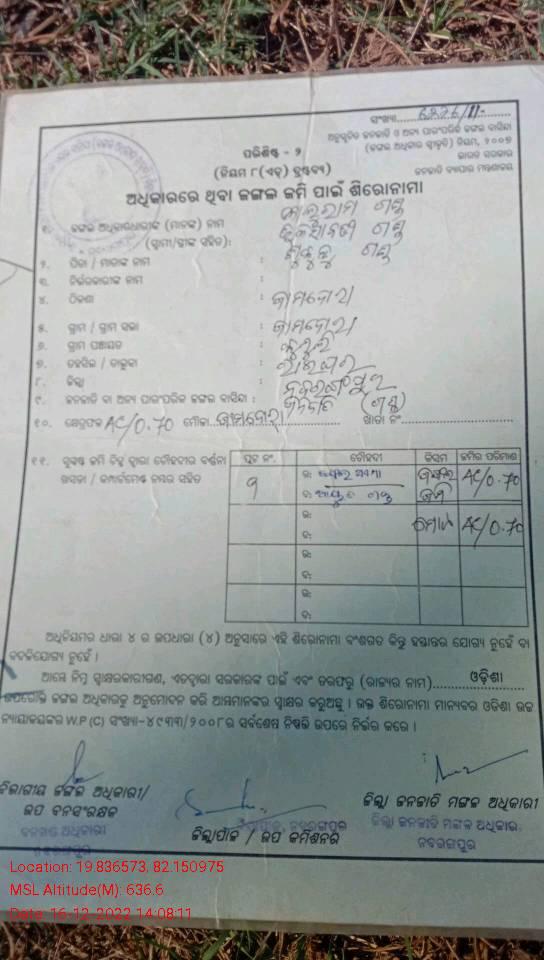 ସଂଖ୍ୟା
ଅନୁସୂଚିତ ଜନଜାତି ଓ ଅନ୍ୟ ପାରଂପରିକ ଜଙ୍ଗଲ ବାସିନ୍ଦା
(ଜଙ୍ଗଲ ଅଧିକାର ସ୍ୱୀକୃତି) ନିୟମ, ୨୦୦୭
ଭାରତ ସରକାର
ଜନଜାତି ବ୍ୟାପାର ମନ୍ତ୍ରଣାଳୟ
ପରିଶିଷ୍ଟ - ୨
(ନିୟମ ୮(ଏଚ୍) ଦ୍ରଷ୍ଟବ୍ୟ)
ଅଧିକାରରେ ଥିବା ଜଙ୍ଗଲ ଜମି ପାଇଁ ଶିରୋନାମା
୧. ଜଙ୍ଗଲ ଅଧିକାରଧାରୀଙ୍କ (ମାନଙ୍କ) ନାମ
(ସ୍ୱାମୀ/ସ୍ତ୍ରୀଙ୍କ ସହିତ):
୨. ପିତା / ମାତାଙ୍କ ନାମ :
୩. ନିର୍ଭରକାରୀଙ୍କ ନାମ :
୪. ଠିକଣା : ଜାମଦୋରା
୫. ଗ୍ରାମ / ଗ୍ରାମ ସଭା : ଜାମଦୋରା
୬. ଗ୍ରାମ ପଞ୍ଚାୟତ :
୭. ତହସିଲ / ତାଲୁକା : ରାଇଘର
୮. ଜିଲ୍ଲା : ନବରଙ୍ଗପୁର
୯. ଜନଜାତି ବା ଅନ୍ୟ ପାରଂପରିକ ଜଙ୍ଗଲ ବାସିନ୍ଦା : ଜନଜାତି (ଗଣ୍ଡ)
୧୦. କ୍ଷେତ୍ରଫଳ AC/0.70 ମୌଜା ଜାମଦୋରା ଖାତା ନଂ
୧୧. ସୁସ୍ପଷ୍ଟ ଜମି ଚିହ୍ନ ଦ୍ୱାରା ଚୌହଦୀର ବର୍ଣ୍ଣନା
ଖସଡା / କମ୍ପାର୍ଟମେଣ୍ଟ ନମ୍ବର ସହିତ
ପ୍ଲଟ ନଂ. ଚୌହଦୀ କିସମ ଜମିର ପରିମାଣ
୨ ଉ: ଜଙ୍ଗଲ AC/0.70
ଦ: ଜମି
ଉ: ମୋଟ AC/0.70
ଦ:
ଉ:
ଦ:
ଉ:
ଦ:
ଅଧିନିୟମର ଧାରା ୪ ର ଉପଧାରା (୪) ଅନୁସାରେ ଏହି ଶିରୋନାମା ବଂଶଗତ କିନ୍ତୁ ହସ୍ତାନ୍ତର ଯୋଗ୍ୟ ନୁହେଁ ବା
ବଦଳିଯୋଗ୍ୟ ନୁହେଁ ।
ଆମ୍ଭେ ନିମ୍ନ ସ୍ୱାକ୍ଷରକାରୀଗଣ, ଏତଦ୍ୱାରା ସରକାରଙ୍କ ପାଇଁ ଏବଂ ତରଫରୁ (ରାଜ୍ୟର ନାମ) ଓଡ଼ିଶା
ଉପରୋକ୍ତ ଜଙ୍ଗଲ ଅଧିକାରକୁ ଅନୁମୋଦନ କରି ଆମ୍ଭମାନଙ୍କର ସ୍ୱାକ୍ଷର କରୁଅଛୁ । ଉକ୍ତ ଶିରୋନାମା ମାନ୍ୟବର ଓଡିଶା ଉଚ୍ଚ
ନ୍ୟାୟାଳୟଙ୍କର W.P (C) ସଂଖ୍ୟା-୪୯୩୩/୨୦୦୮ର ସର୍ବଶେଷ ନିଷ୍ପତ୍ତି ଉପରେ ନିର୍ଭର କରେ ।
ବିଭାଗୀୟ ଜଙ୍ଗଲ ଅଧିକାରୀ/
ଉପ ବନସଂରକ୍ଷକ
ବନଖଣ୍ଡ ଅଧିକାରୀ
ନବରଙ୍ଗପୁର
ଜିଲ୍ଲାପାଳ, ନବରଙ୍ଗପୁର
ଜିଲ୍ଲାପାଳ / ଉପ କମିଶନର
ଜିଲ୍ଲା ଜନଜାତି ମଙ୍ଗଳ ଅଧିକାରୀ
ଜିଲ୍ଲା ଜନଜାତି ମଙ୍ଗଳ ଅଧିକାରୀ
ନବରଙ୍ଗପୁର
Location: 19.836573, 82.150975
MSL Altitude(M): 636.6
Date: 16-12-2022 14:08:11